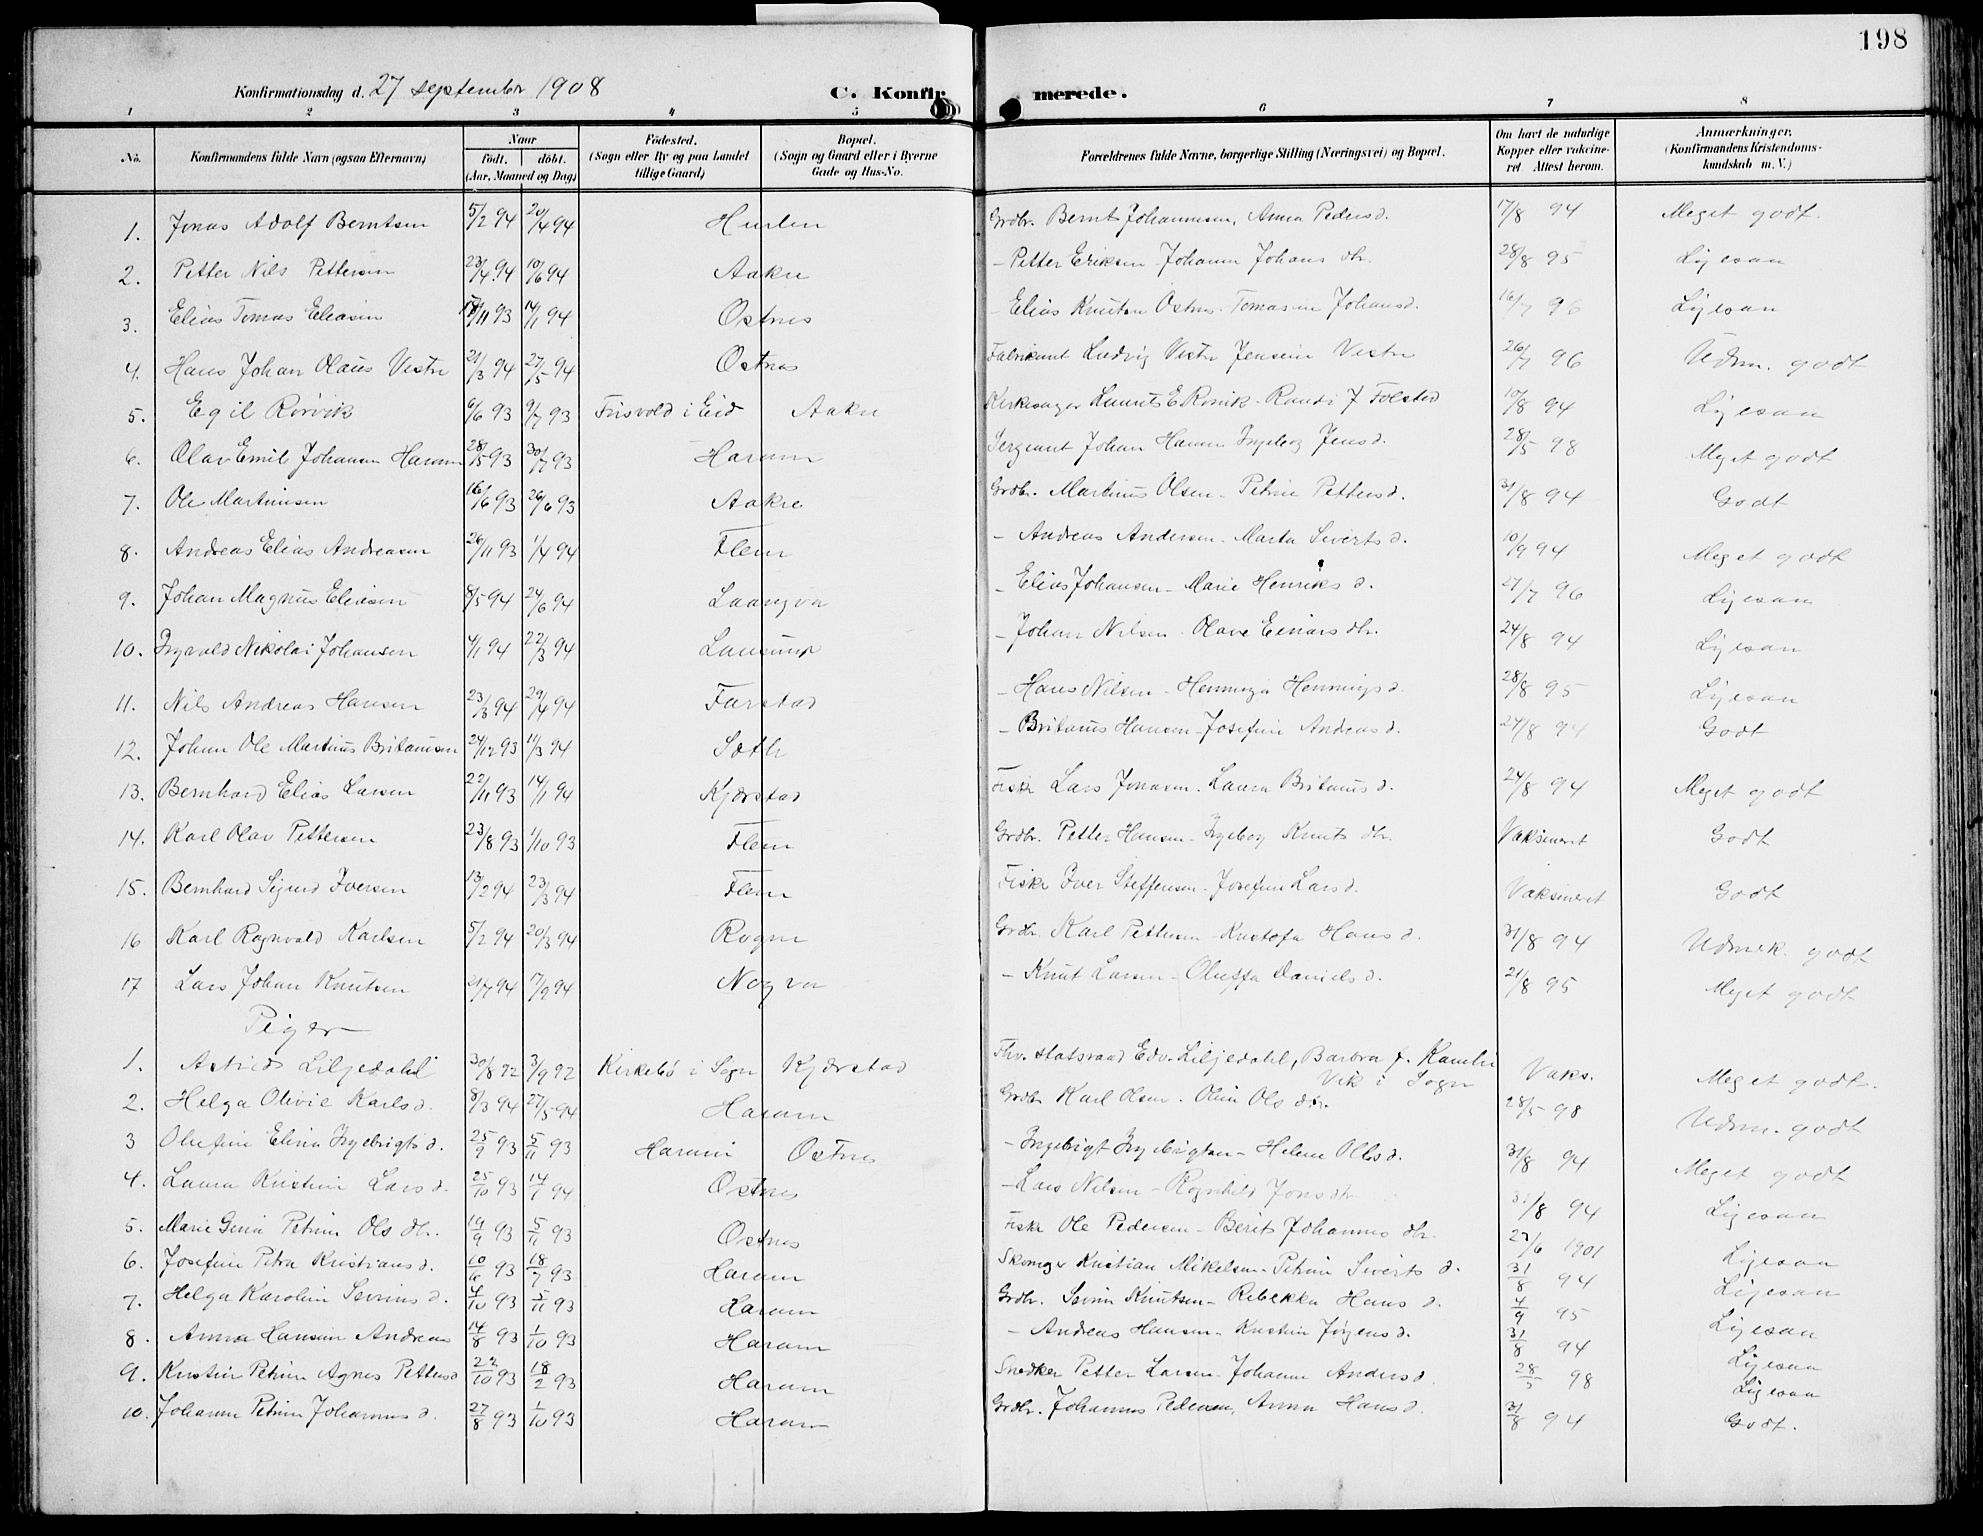 198
Konfirmationsdag d. 27 september 1908 C. Konfirmerede.
1 2 3 4 5 6 7 8
No. Konfirmandens fulde Navn (ogsaa Efternavn) Naar født. døbt. (Aar, Maaned og Dag) Fødested. (Sogn eller By og paa Landet tillige Gaard) Bopæl. (Sogn og Gaard eller i Byerne Gade og Hus-No. Forældrenes fulde Navne, borgerlige Stilling (Næringsvei) og Bopæl. Om havt de naturlige Kopper eller vaccineret. Attest herom. Anmærkninger. (Konfirmandens Kristendomskundskab m. V.)
1. Jonas Adolf Berntsen 5/2 94 20/4 94 Hurlen Grdbr. Bernt Johannesen, Anna Peders d. 17/8 94 Meget godt.
2. Petter Nils Pettersen 23/4 94 10/6 94 Aakre – Petter Eriksen Johanne Johans dtr. 28/8 95 Ligesaa
3. Elias Tomas Eliasen /11 93 14/1 94 Ostnes – Elias Knutsen Ostnes. Tomasine Johans d. 16/7 96 Ligesaa
4. Hans Johan Olaus Vestre 21/3 94 27/5 94 Ostnes Fabrikant Ludvig Vestre Jensine Vestre 26/7 96 Udm. godt
5. Egil Rörvik 6/6 93 9/7 93 Frisvold i Eid Aakre Kirkesanger Laurits E Rörvik - Randi J Tolstad 10/8 94 Ligesaa
6. Olav Emil Johansen Haram 28/5 93 30/7 93 Haram Sergeant Johan Haram Ingeborg Jens d. 28/5 98 Meget godt
7. Ole Martinusen 16/6 93 26/6 93 Aakre Grdbr. Martinus Olsen - Petrine Petters d. 31/8 94 Godt
8. Andreas Elias Andreasen 26/11 93 1/4 94 Flem – Andreas Andersen - Marta Siverts d. 10/9 94 Meget godt
9. Johan Magnus Eliasen 8/5 94 24/6 94 Laangva – Elias Johansen - Marie Henriks d. 27/7 96 Ligesaa
10. Ingvald Nikolai Johansen 4/1 94 22/3 94 Lausund – Johan Nilsen - Olave Einars dtr. 24/8 94 Ligesaa
11. Nils Andreas Hansen 23/3 94 29/4 94 Farstad – Hans Nilsen - Henninga Hennings d. 28/8 95 Ligesaa
12. Johan Ole Martinus Britanusen 24/12 93 11/3 94 Sæth – Britanus Hansen - Josefine Andreas d. 24/8 94 Godt
13. Bernhard Elias Larsen 22/11 93 14/1 94 Kjærstad Fisker Lars Jonasen. Laura Britanus d. 24/8 94 Meget godt
14. Karl Olav Pettersen 23/8 93 1/10 93 Flem Grdbr. Petter Hansen - Ingeborg Knuts dtr. Vaksineret Godt
15. Bernhard Sigurd Iversen 13/2 94 23/3 94 Flem Fisker Iver Steffensen - Josefine Lars d. Vaksineret Godt
16 Karl Ragnvald Karlsen 5/2 94 20/3 94 Rogne Grdbr. Karl Pettersen - Kristofa Hans d. 31/8 94 Udmerk. godt
17 Lars Johan Knutsen 21/7 94 17/9 94 Nogva – Knut Larsen - Oluffa Daniels d. 21/8 95 Meget godt
Piger
1. Astrid Liljedahl 30/8 92 3/9 92 Kirkebö i Sogn Kjærstad Fhv. statsraad Edv. Liljedahl, Barbra f. Vik i Sogn Vaks. Meget godt.
2. Helga Olivie Karls d. 8/3 94 27/5 94 Haram Grdbr Karl Olsen. Oline Ols dtr. 28/5 98 Udm. godt
3 Olufine Elina Ingebrigts d. 25/9 93 5/11 93 Haram Ostnes – Ingebrigt Ingebrigtsen - Helene Ols d. 31/8 94 Meget godt
4. Laura Kristine Lars d. 25/10 93 14/1 94 Ostnes – Lars Nilsen - Ragnhild Jons dtr 31/8 94 Ligesaa
5. Marie Gurine Petrine Ols dtr. 19/9 93 5/11 93 Ostnes Fisker Ole Pedersen - Berit Johannes dtr. 27/6 1901 Ligesaa
6. Josefine Petra Kristians d. 10/6 93 18/7 93 Haram Skomager Kristian Mikelsen - Petrine Siverts d. 31/8 94 Ligesaa
7. Helga Karoline Severins d. 4/10 93 5/11 93 Haram Grdbr. Severin Knutsen - Rebekka Hans d. 4/9 95 Ligesaa
8. Anna Hansine Andreas 14/8 93 1/10 93 Haram – Andreas Hansen. Kristine Jörgens d. 31/8 94 Ligesaa
9. Kristine Petrine Agnes Petters d 22/10 93 18/2 93 Haram Snedker Petter Larsen - Johanne Anders d. 28/5 98 Ligesaa
10. Johanne Petrine Johannes d. 27/8 93 1/10 93 Haram Grdbr. Johannes Pedersen, Anna Hans d. 31/8 94 Godt.